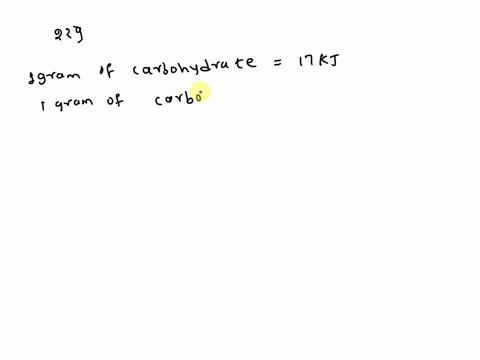 22g
1gram of carbohydrate = 17 KJ
1 gram of carbo